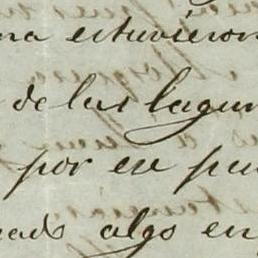 na estuvieron
de las lagun
por ese pu
cado algo en